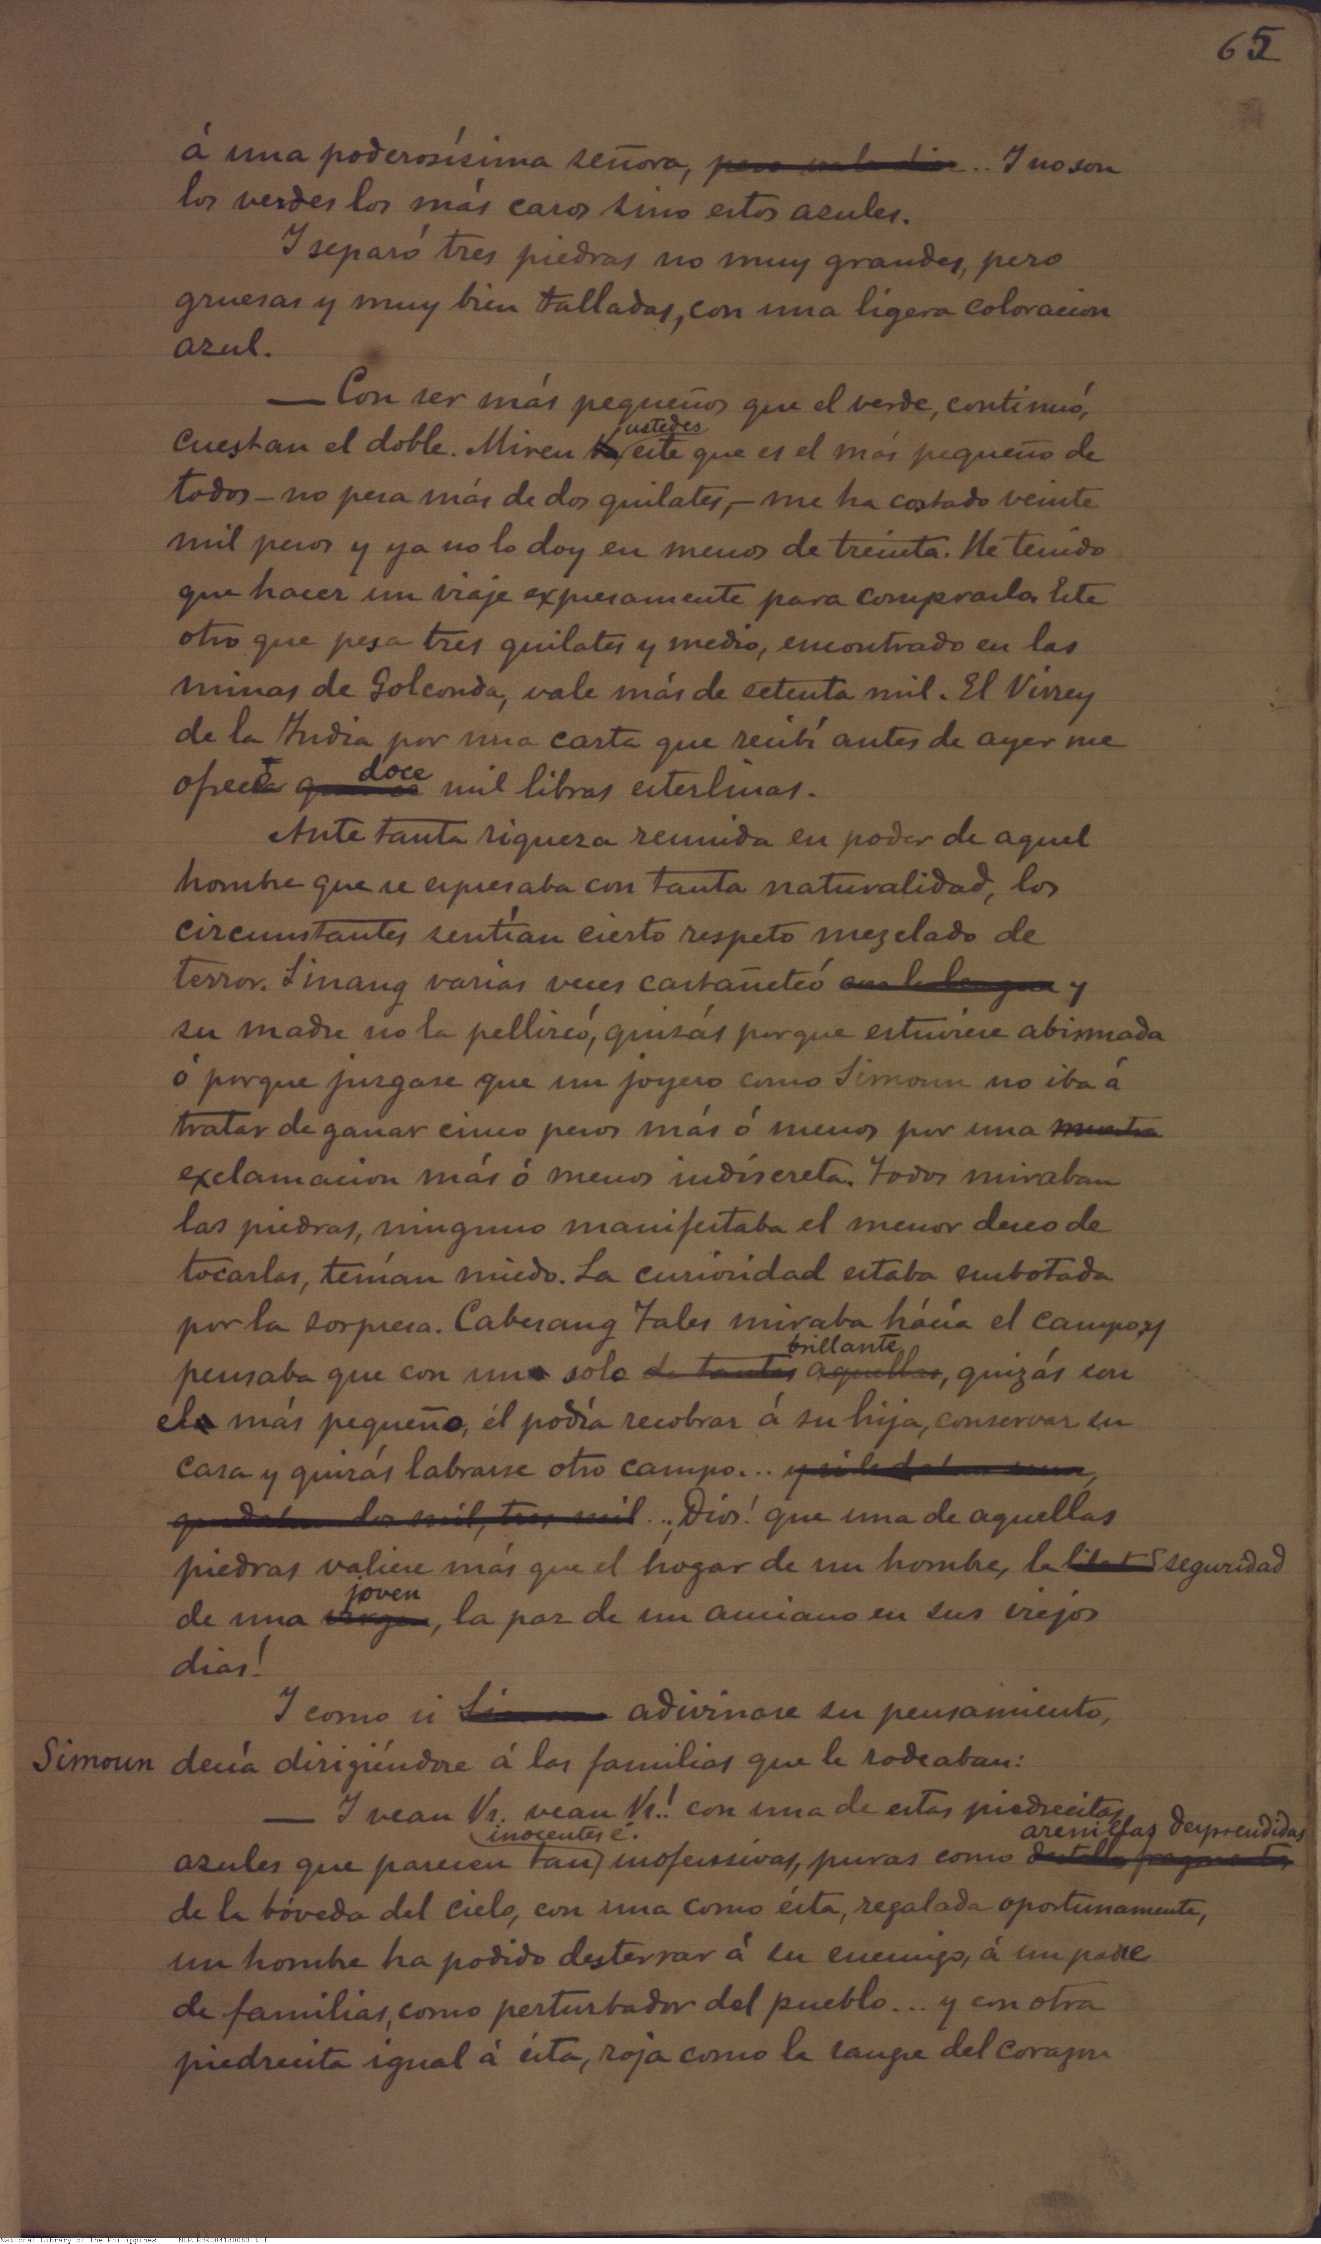 65
á una poderosísima señora, ... Y no son
los verdes los más caros sino estos azules.
Y separó tres piedras no muy grandes, pero
gruesas y muy bien talladas, con una ligera coloracion
azul.
— Con ser más pequeños que el verde, continuó,
cuestan el doble. Miren ustedes este que es el más pequeño de
todos – no pesa más de dos quilates, – me ha costado veinte
mil pesos y ya no lo doy en menos de treinta. He tenido
que hacer un viaje expresamente para comprarlo. Este
otro que pesa tres quilates y medio, encontrado en las
minas de Golconda, vale más de setenta mil. El Virrey
de la India por una carta que recibí antes de ayer me
ofrece doce mil libras esterlinas.
Ante tanta riqueza reunida en poder de aquel
hombre que se espresaba con tanta naturalidad, los
circunstantes sentían cierto respeto mezclado de
terror. Sinang varias veces castañeteó con la lengua y
su madre no la pellizcó, quizás porque estuviese abismada
ó porque juzgase que un joyero como Simoun no iba á
tratar de ganar cinco pesos más ó menos por una
exclamacion más ó menos indiscreta. Todos miraban
las piedras, ninguno manifestaba el menor deseo de
tocarlas, tenían miedo. La curiosidad estaba embotada
por la sorpresa. Cabesang Tales miraba hácia el campo, y
pensaba que con un solo de tantos aquellas brillante, quizás con
el más pequeño, él podía recobrar á su hija, conservar su
casa y quizás labrarse otro campo...
dos mil, tres mil ... ¡Dios! que una de aquellas
piedras valiese más que el hogar de un hombre, la seguridad
de una virgen joven, la paz de un anciano en sus viejos
dias!
Y como si Simoun adivinase su pensamiento,
Simoun decía dirigiéndose á las familias que le rodeaban:
— Y vean Vs. vean Vs.! con una de estas piedrecitas
azules que parecen tan inocentes é inofensivas, puras como arenillas desprendidas
de la bóveda del cielo, con una como ésta, regalada oportunamente,
un hombre ha podido desterrar á su enemigo, á un padre
de familias, como perturbador del pueblo... y con otra
piedrecita igual á ésta, roja como la sangre del corazon
National Library of the Philippines